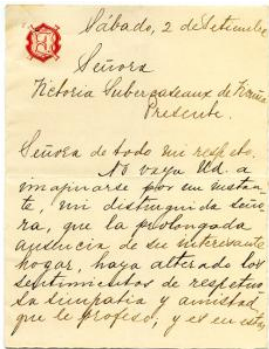 Sábado, 2 de Setiembre
Señora
Victoria Subercaseaux de Vicuña
Presente.
Señora de todo mi respeto.
No vaya Ud. a
imajinarse por un instan-
te, mi distinguida seño-
ra, que la prolongada
ausencia de su interesante
hogar, haya alterado los
sentimientos de respetuo-
sa simpatia y amistad
que le profeso; y es en estos